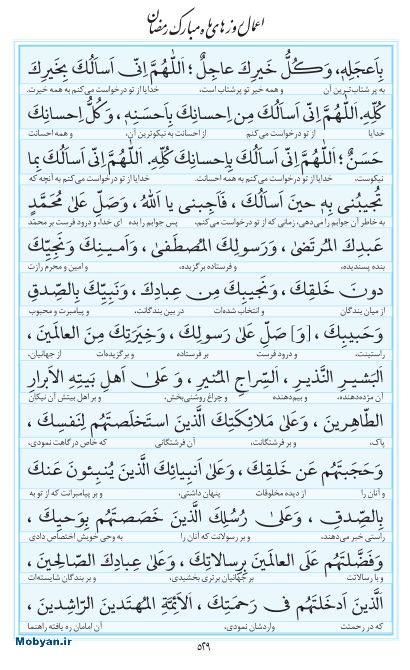 اعمال روزهای ماه مبارک رمضان
بِاَعجَلِهِ، وَکُلُّ خَیرِكَ عاجِلٌ؛ اَللّٰهُمَّ اِنّی اَساَلُكَ بِخَیرِكَ
به پر شتاب‌ترین آن و همه خیر تو پرشتاب است، خدایا از تو درخواست می‌کنم به همه خیرت.
کُلِّهِ. اَللّٰهُمَّ اِنّی اَساَلُكَ مِن اِحسانِكَ بِاَحسَنِهِ، وَکُلُّ اِحسانِكَ
خدایا از تو درخواست می‌کنم از احسانت به نیکوترین آن، و همه احسانت
حَسَنٌ؛ اَللّٰهُمَّ اِنّی اَساَلُكَ بِاِحسانِكَ کُلِّهِ. اَللّٰهُمَّ اِنّی اَساَلُكَ بِما
نیکوست، خدایا از تو درخواست می‌کنم به همه احسانت. خدایا از تو درخواست می‌کنم به آنچه که
تُجیبُنی بِهِ حینَ اَساَلُكَ ، فَاَجِبنی یا اَللّٰهُ ، وَصَلِّ عَلیٰ مُحَمَّدٍ
به خاطر آن جوابم را می‌دهی، زمانی که از تو درخواست می‌کنم، پس جوابم را بده ای خدا، و درود فرست بر محمّد
عَبدِكَ المُرتَضیٰ، وَرَسولِكَ المُصطَفیٰ، وَاَمینِكَ وَنَجیِّكَ
بنده پسندیده، و فرستاده برگزیده، و امین و محرم رازت
دونَ خَلقِكَ، وَنَجیبِكَ مِن عِبادِكَ، وَنَبیِّكَ بِالصِّدقِ
از میان بندگان و انتخاب شده‌ات در بین بندگانت، و پیامبرت و محبوب
وَحَبیبِكَ ، [وَ] صَلِّ عَلیٰ رَسولِكَ، وَخِیَرَتِكَ مِنَ العالَمینَ،
راستینت، و درود فرست بر فرستاده و برگزیده‌ات از جهانیان،
اَلبَشیرِ النَّذیرِ ، اَلسِّراجِ المُنیرِ ، وَ عَلیٰ اَهلِ بَیتِهِ الاَبرارِ
آن مژده‌دهنده، و بیم‌دهنده و چراغ روشنی‌بخش، و بر اهل بیتش آن نیکان
الطّاهِرینَ ، وَعَلیٰ مَلائِکَتِكَ الَّذینَ استَخلَصتَهُم لِنَفسِكَ ،
پاک، و بر فرشتگانت، آن فرشتگانی که خاص درگاهت نمودی،
وَحَجَبتَهُم عَن خَلقِكَ، وَعَلیٰ اَنبِیائِكَ الَّذینَ یُنبِئونَ عَنكَ
و آنان را از دیده مخلوقات پنهان داشتی، و بر پیامبرانت که از تو به
بِالصِّدقِ ، وَعَلیٰ رُسُلِكَ الَّذینَ خَصَصتَهُم بِوَحیِكَ ،
راستی خبر می‌دهند، و بر رسولانت که آنان را به وحی خویش اختصاص دادی
وَفَضَّلتَهُم عَلَی العالَمینَ بِرِسالاتِكَ، وَعَلیٰ عِبادِكَ الصّالِحینَ،
و با رسالاتت بر جهانیان برتری بخشیدی، و بر بندگان شایسته‌ات
اَلَّذینَ اَدخَلتَهُم فی رَحمَتِكَ، اَلاَئِمَّةِ المُهتَدینَ الرّاشِدینَ،
که در رحمتت واردشان نمودی، آن امامان ره یافته راهنما
۵۲۹
Mobyan.ir